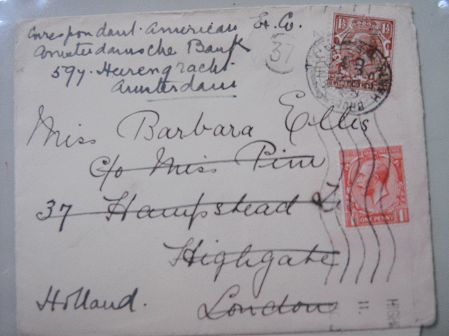 Correspondent American Ex. Co.
Amsterdamsche Bank
597. Heerengracht
Amsterdam
37
Miss Barbara Ellis
c/o Miss Pim
37 Hampstead
Highgate
London
Holland.
ONE PENNY
1
1